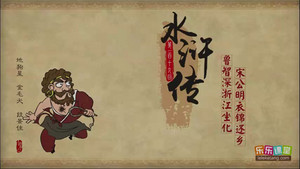 宋公明衣锦还乡
鲁智深浙江坐化
水浒传
地狗星 金毛犬 段景住
乐乐课堂
leleketang.com